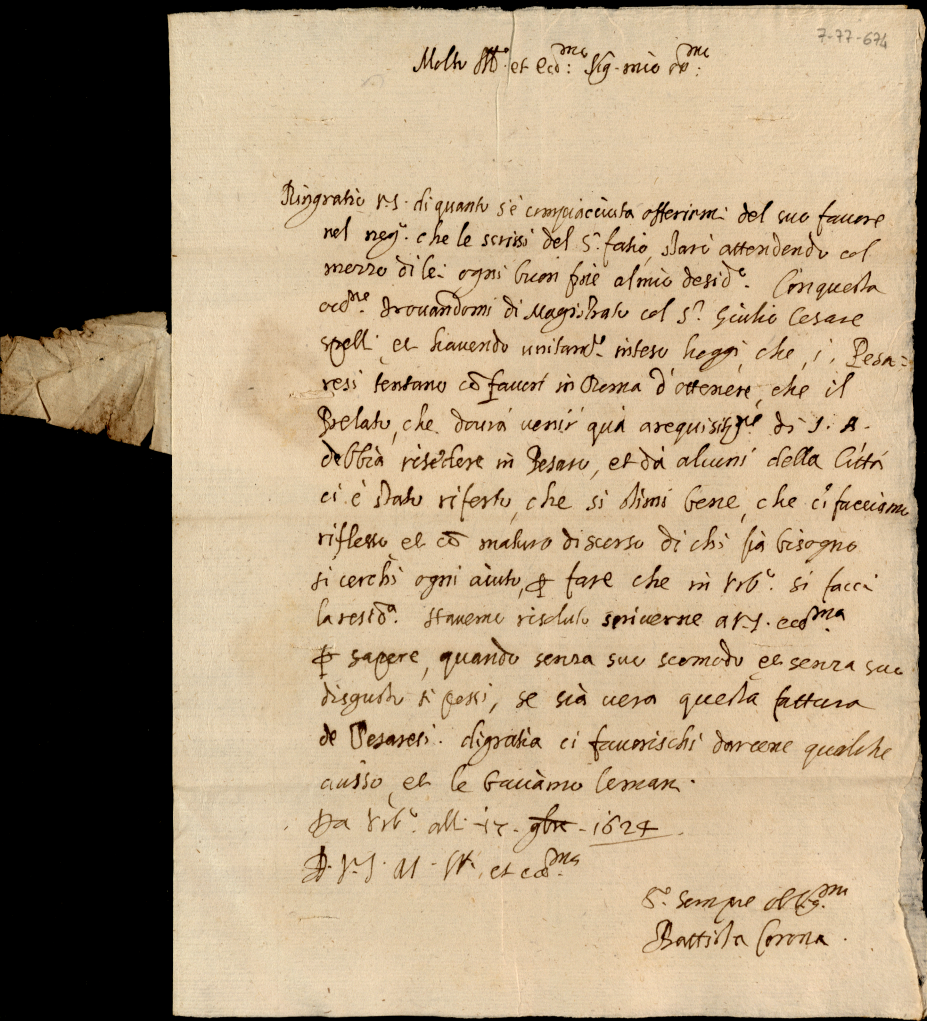 7-77-674
Molto Ill.e et ecc.mo Sig. mio oss.mo
Ringratio V.S. di quanto s'è compiacciuta offerirmi del suo favore
nel neg.o che le scrissi del S.r fatio, starò attendendo col
mezzo di lei ogni buon fine al mio desid.o. Con questa
occ.ne trovandomi di Magistrato col S.r Giulio Cesare
Spelli et havendo unitam.te inteso hoggi che, i, Pesa=
resi tentano cõ favori in Roma d'ottenere, che il
Prelato, che dovrà venir quà a requisit.ne di S. A.
debbia risedere in Pesaro, et da alcuni della Città
ci è stato riferto, che si stimi bene, che ci facciamo
riflesso et cõ maturo discorso di chi fia bisogno
si cerchi ogni aiuto, ꝑ fare che in Urb.o si facci
la resid.a. Havemo risoluto scriverne a V.S. ecc.ma
ꝑ sapere, quando senza suo scomodo et senza suo
disgusto si possi, se sia vera questa fattura
de Pesaresi. di gratia ci favorischi darcene qualche
aviso, et le baciamo le mani.
Da Urb.o alli 17 - 9bre - 1624
D. V. S. M. Ill. et ecc.ma
S.re sempre oblig.mo
Battista Corona.